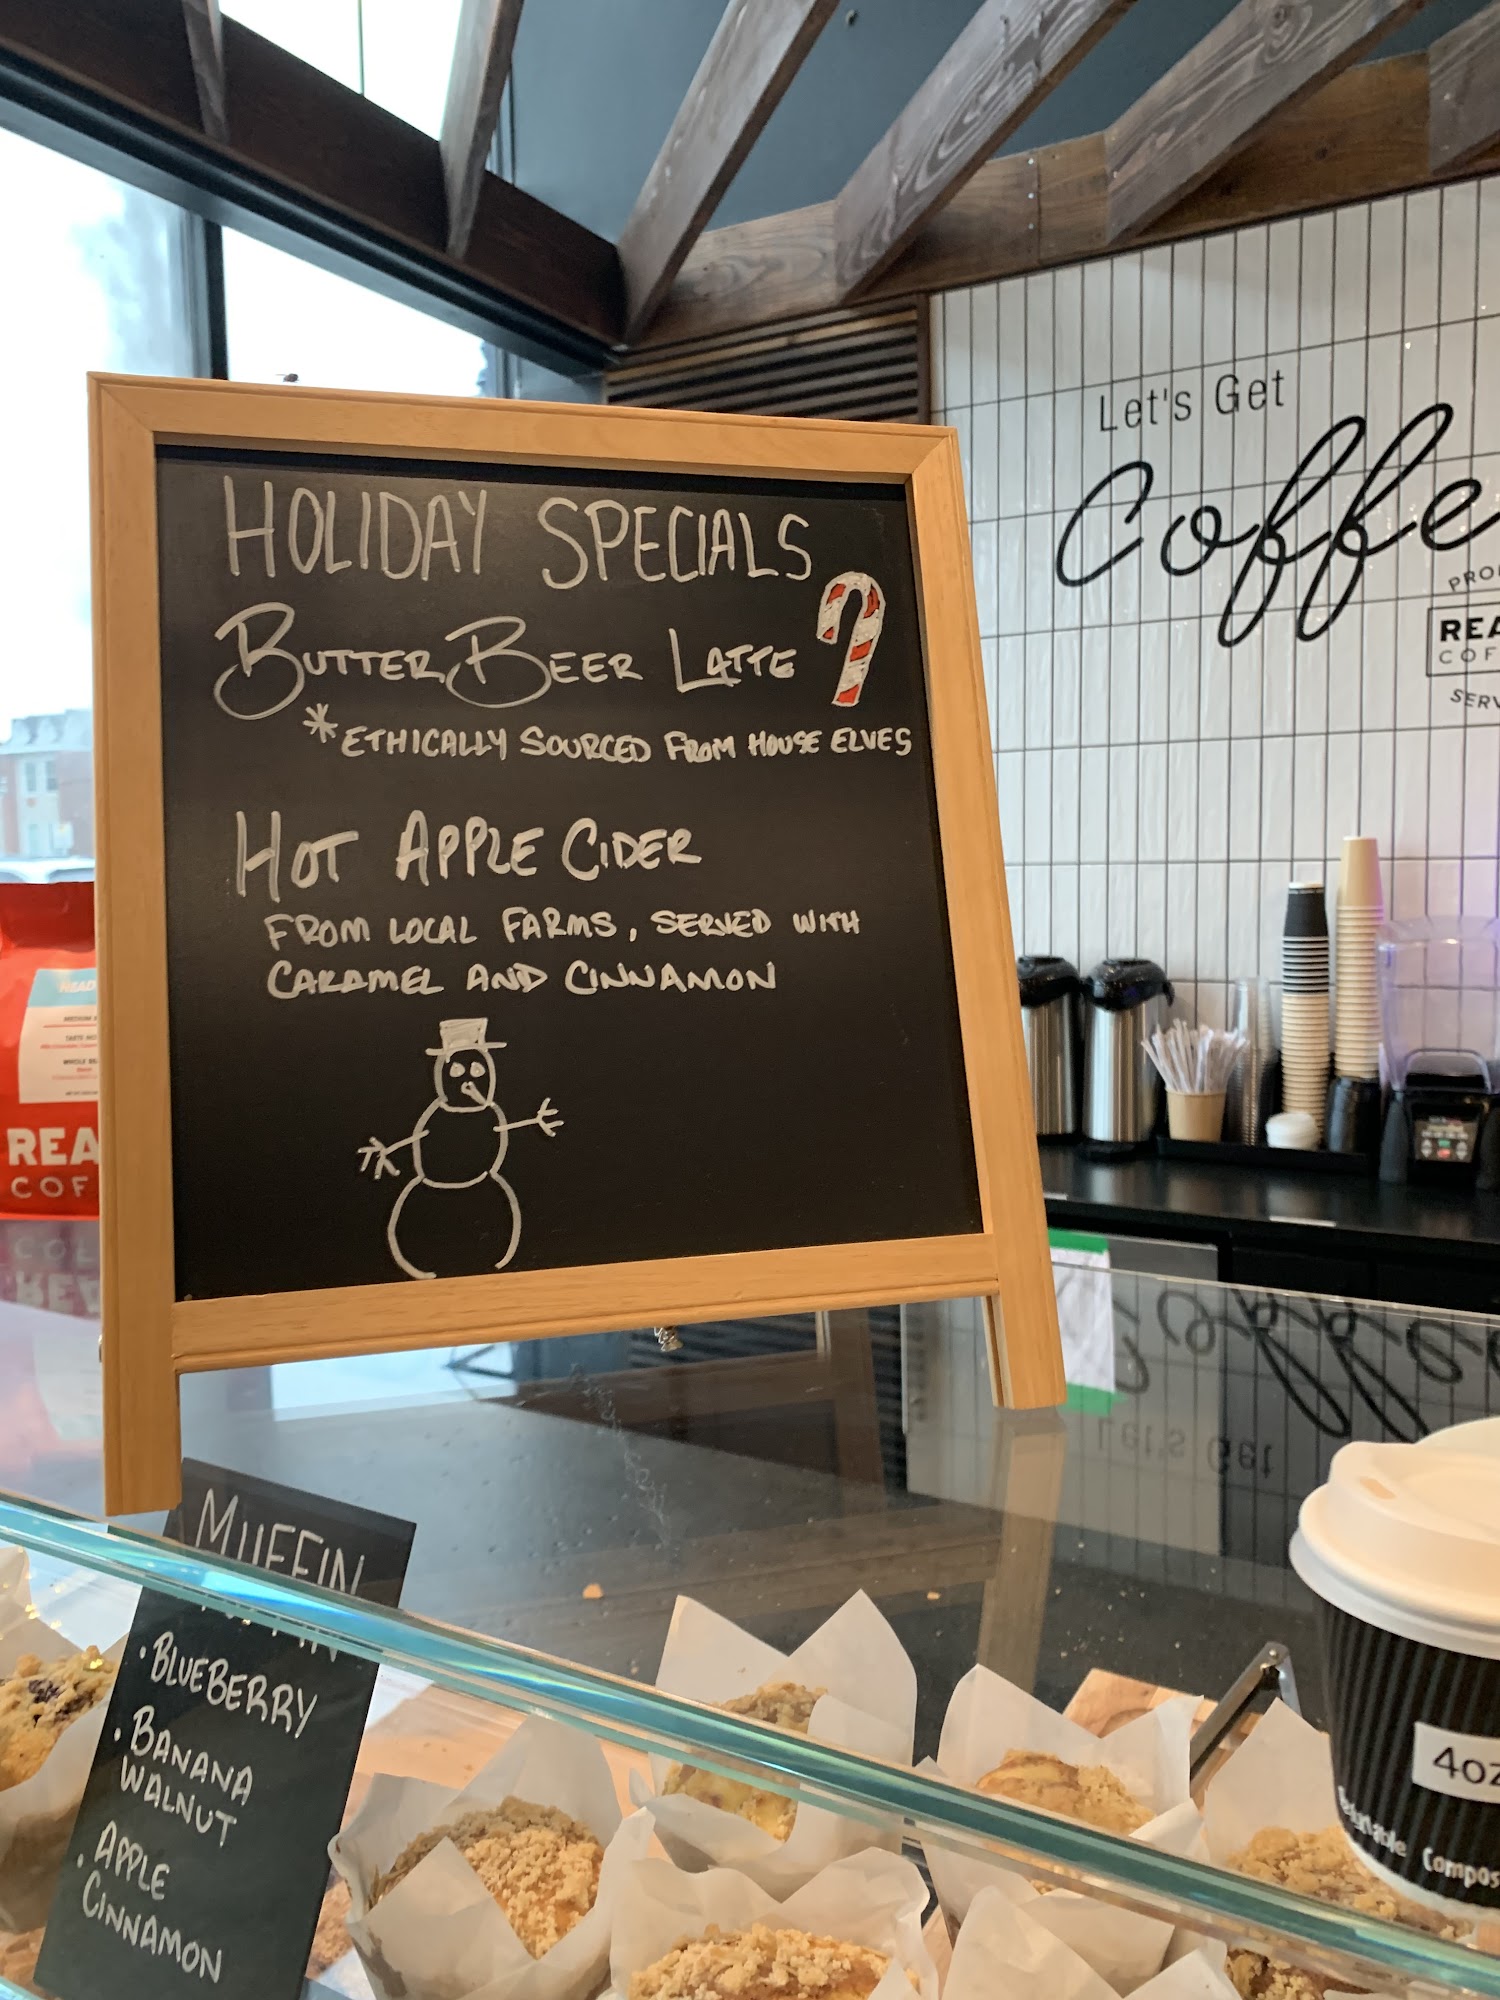 Let's Get
Coffe
PRO
REA
COF
SERV
HOLIDAY SPECIALS
BUTTER BEER LATTE
*ETHICALLY SOURCED FROM HOUSE ELVES
HOT APPLE CIDER
FROM LOCAL FARMS, SERVED WITH
CARAMEL AND CINNAMON
READ
REA
COF
MUFFIN
• BLUEBERRY
• BANANA
WALNUT
• APPLE
CINNAMON
4oz
Compos